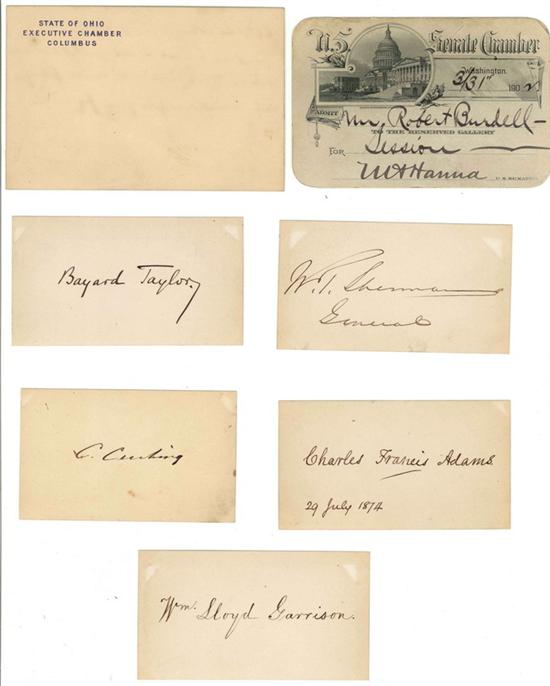 STATE OF OHIO
EXECUTIVE CHAMBER
COLUMBUS
U.S. Senate Chamber
Washington,
3/31st 190
ADMIT
Mr. Robert Burdell
TO THE RESERVED GALLERY
FOR Session
M A Hanna
U.S. SENATOR
Bayard Taylor,
W. T. Sherman
General
C. Cushing
Charles Francis Adams.
29 July 1874
Wm. Lloyd Garrison.